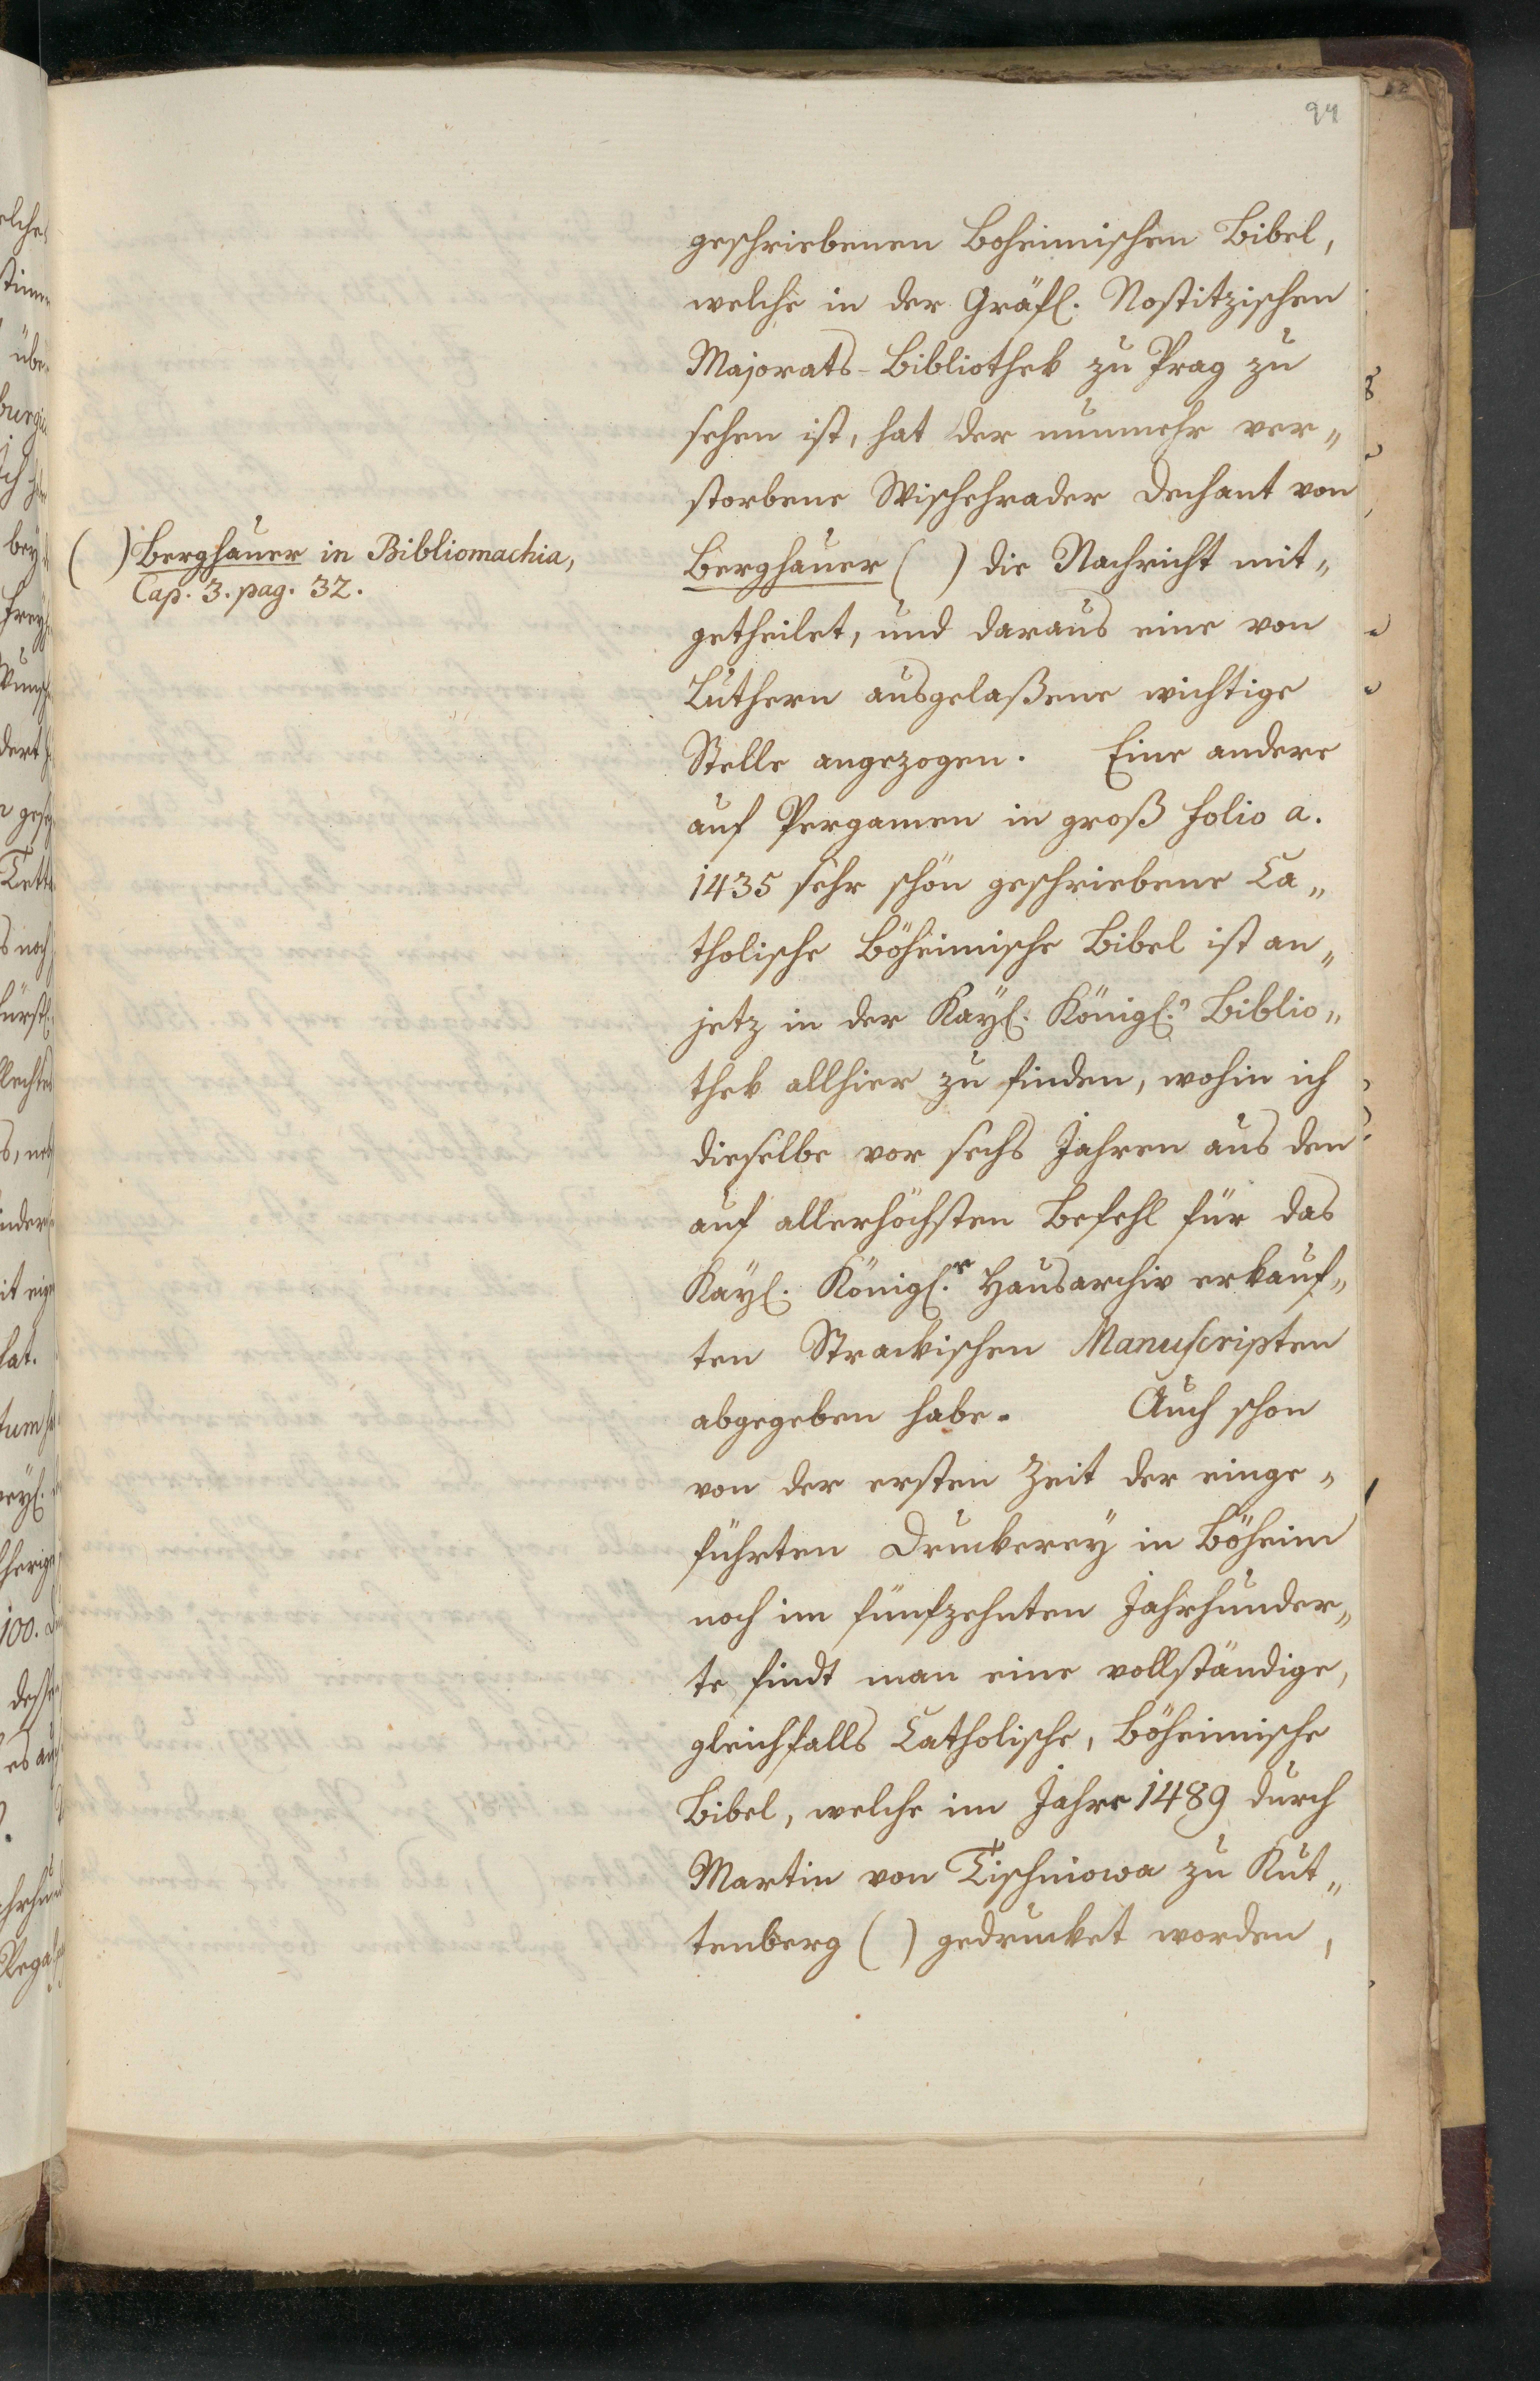 94
geschriebenen Boheimischen Bibel,
welche in der Gräfl. Nostitzischen
Majorats-Bibliothek zu Prag zu
sehen ist, hat der nunmehr ver„
storbene Wischehrader Dechant von
Berghauer ( ) die Nachricht mit„
getheilet, und daraus eine von
Luthern ausgelaßene wichtige
Stelle angezogen. Eine andere
auf Pergamen in groß folio a.
1435 sehr schön geschriebene Ca„
tholische Böheimische Bibel ist an„
jetz in der Kayl. Königl. Biblio„
thek allhier zu finden, wohin ich
dieselbe vor sechs Jahren aus den
auf allerhöchsten Befehl für das
Kayl. Königl.r Hausarchiv erkauf„
ten Strackischen Manuscripten
abgegeben habe. Auch schon
von der ersten Zeit der einge„
führten Druckerey in Böheim
noch im fünfzehnten Jahrhunder„
te findt man eine vollständige,
gleichfalls Catholische, Böheimische
Bibel, welche im Jahre 1489 durch
Martin von Tischniowa zu Kut„
tenberg ( ) gedrucket worden,
( ) Berghauer in Bibliomachia,
Cap. 3. pag. 32.